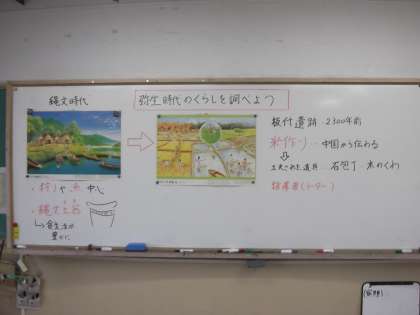 縄文時代
・狩りや漁中心
・縄文土器
↳食生活が
豊かに
弥生時代のくらしを調べよう
板付遺跡 2300年前
米作り…中国から伝わる
工夫された道具 石包丁・木のくわ
指導者(リーダー)